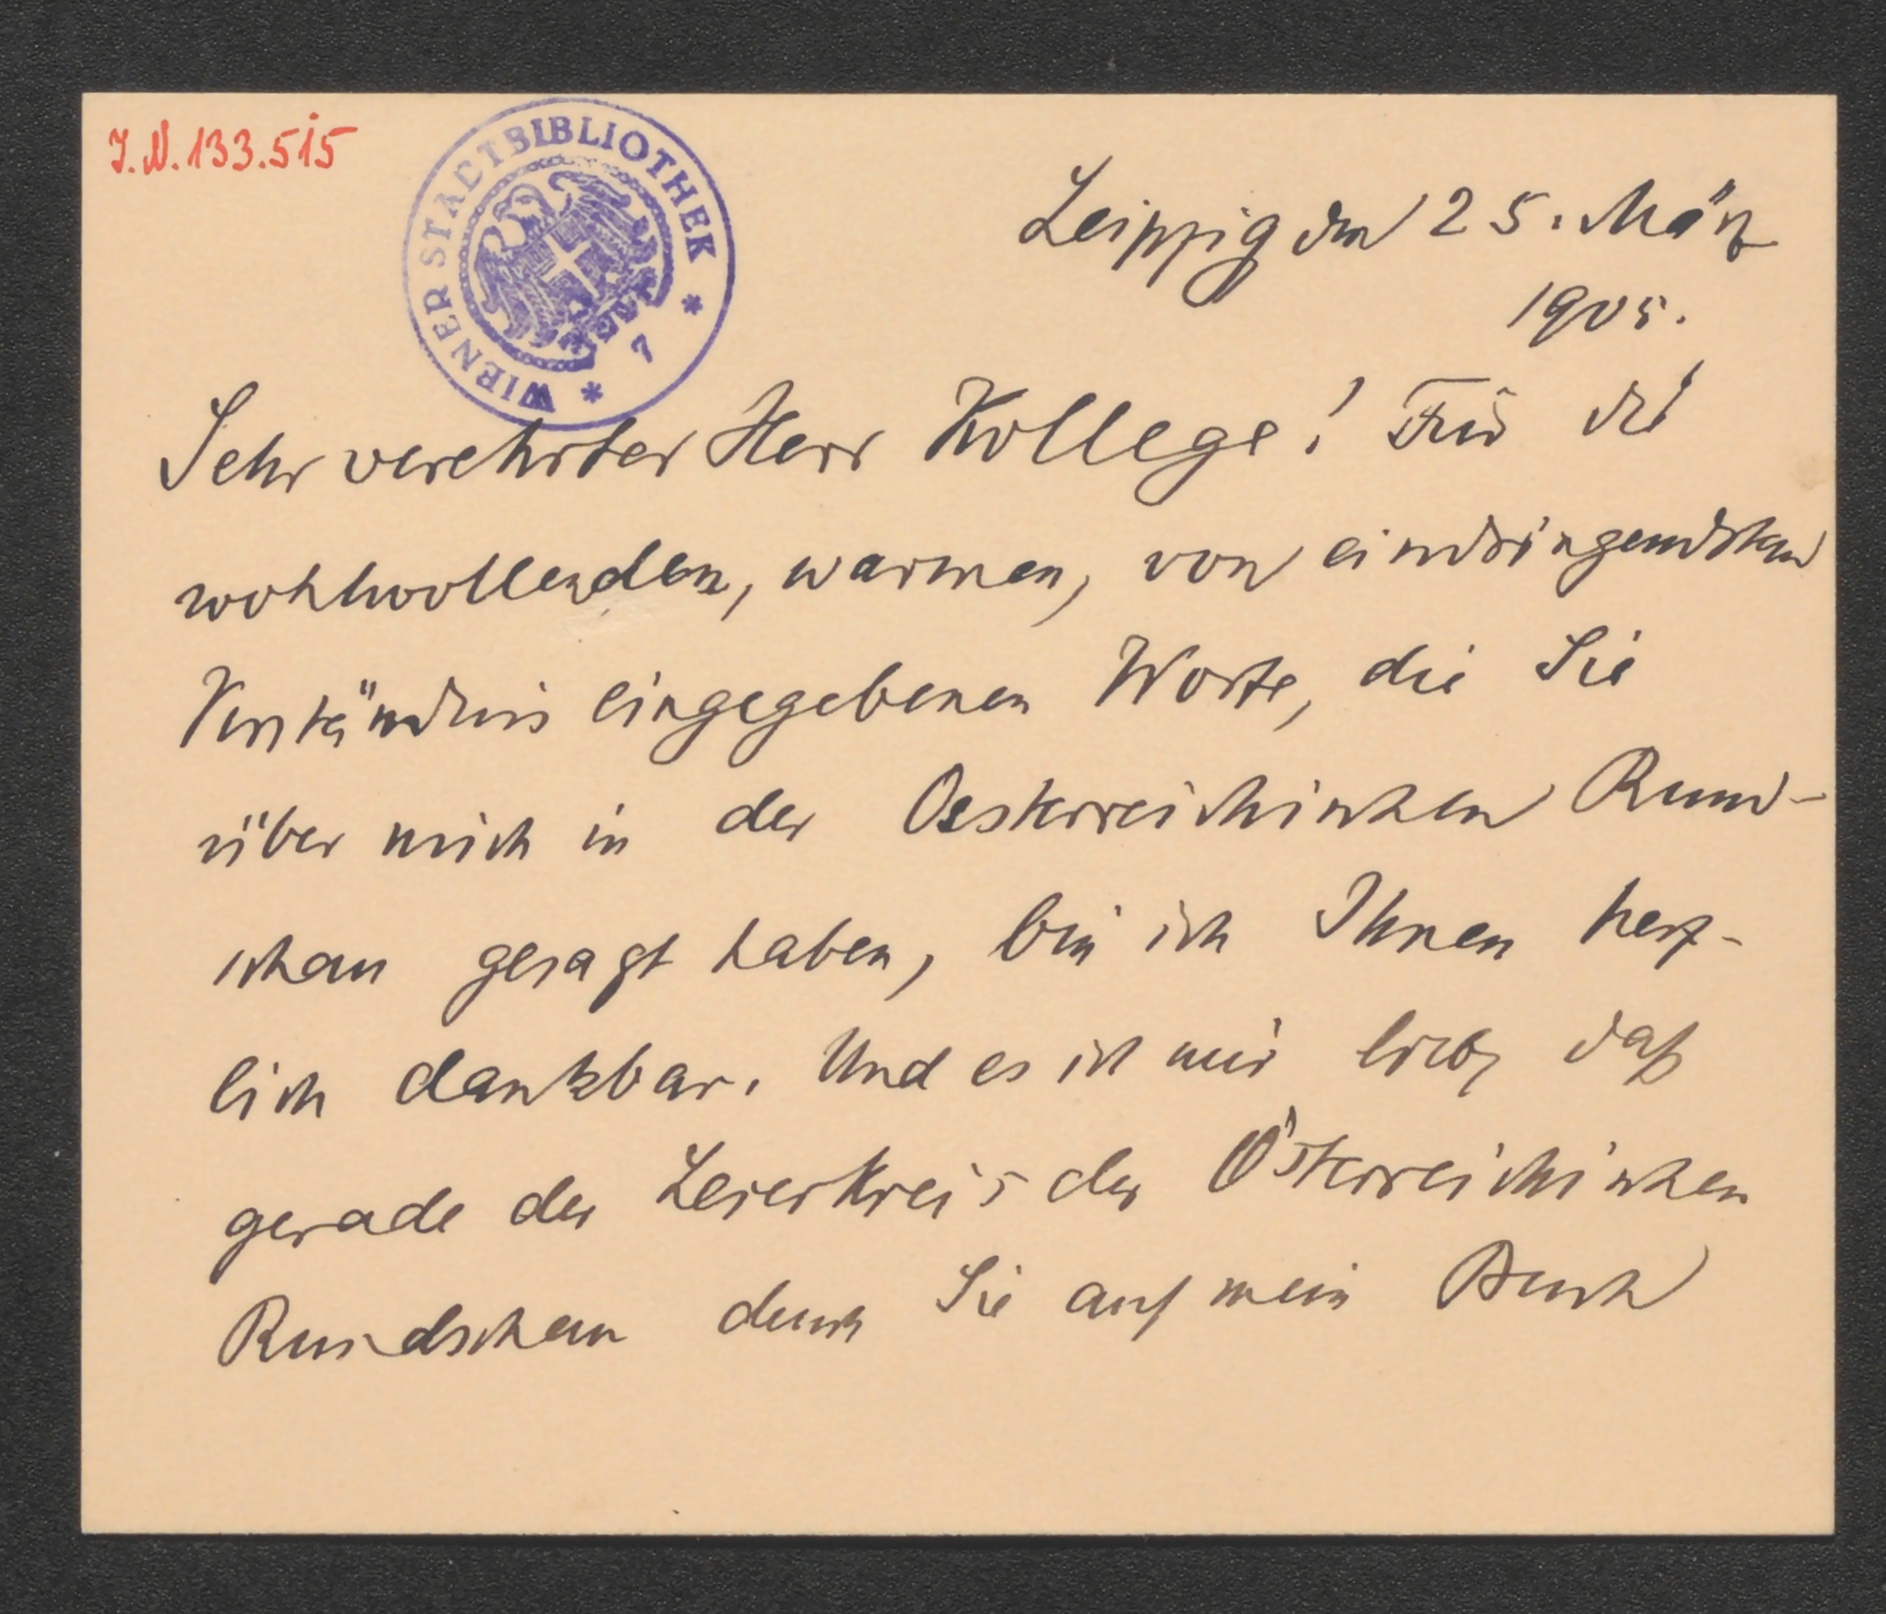 J.N.133.515
WIENER STADTBIBLIOTHEK * 7 *
Leipzig den 25. März
1905.
Sehr verehrter Herr Kollege! Für die
wohlwollenden, warmen, von eindringendstem
Verständnis eingegebenen Worte, die Sie
über mich in der Oesterreichischen Rund-
schau gesagt haben, bin ich Ihnen herz-
lich dankbar. Und es ist mir lieb, daß
gerade der Leserkreis der Österreichischen
Rundschau durch Sie auf mein Buch